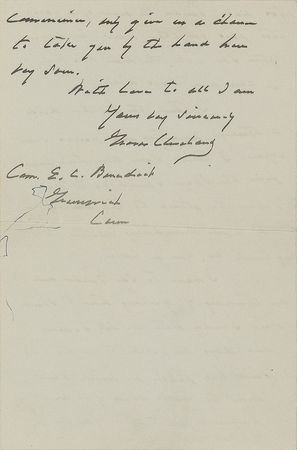 convenience, only give us a chance
to take you by the hand here
very soon.
With love to all I am
Yours very sincerely
Grover Cleveland
Com. E. C. Benedict
Greenwich
Conn